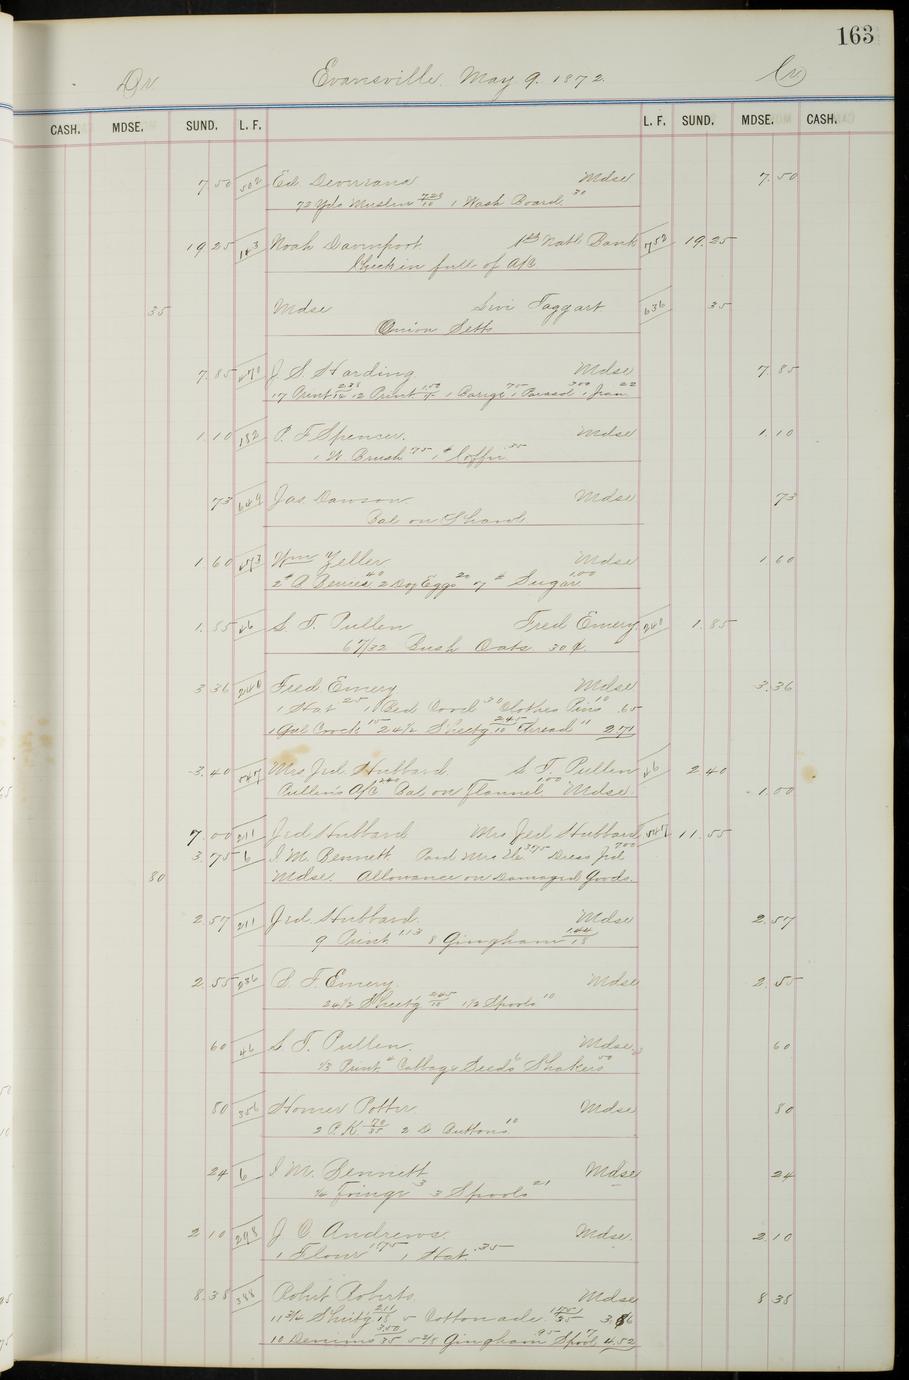 163
Dr Evansville May 9. 1872. Cr
CASH. MDSE. SUND. L. F. L. F. SUND. MDSE. CASH.
7.50 502 Ed. Mdse 7.50
72 Yds Muslin 720/10 1 Wash Board 30
19 25 143 Noah Davenport 1st Natl Bank 752 19.25
Check in full of A/C
35 Mdse Levi Taggart 636 35
Onion Setts
7.85 J. S. Harding Mdse 7.85
17 Print 12 Print 1 75 1 Parasol 300 1 22
1.10 182 P. F. Spencer. Mdse 1.10
1 W. Brush 75 1 # Coffee 35
73 649 Jas. Dawson Mdse 73
Bal on Shawl
1 60 Wm Zeller Mdse 1 60
2# 40 2 Doz Eggs 20 7 # Sugar 1.00
1.85 46 S. T. Pullen Fred Emery 240 1.85
6 7/32 Bush Oats. 30 ¢.
3 36 240 Fred Emery Mdse 3.36
1 Hat 25 1 Bed Cord 30 Clothes Pins 10 .65
1 Gal Crock 15 24½ Sheetg 245/10 Thread 11 2.71
3.40 547 Mrs Jed. Hubbard. S. T. Pullen 46 2 40
Pullen's A/C 240 Bal on Flannel 1.00 Mdse. 1.00
7.00 211 Jed Hubbard Mrs Jed Hubbard 547 11.55
3.75 6 I. M. Bennett Paid Mrs H. 375 Dress Jed 700
80 Mdse. Allowance on Damaged Goods.
2.57 211 Jed. Hubbard. Mdse 2.57
9 Print 113 8 Gingham 144/18
2.55 236 S. F. Emery. Mdse 2.55
24½ Sheet'g 245/10 1/2 Spools 10
60 46 S. T. Pullen. Mdse. 60
1/3 Print 4 Cabbage Seeds 6 Shakers 50
80 356 Homer Potter Mdse 80
2 P.K. 70/35 2 D Buttons 10
24 6 I. M. Bennett Mdse 24
Fringe 3 3 Spools 21
2 10 298 J. C. Andrews. Mdse. 2.10
1 Flour 175 1 Hat. 35
8.38 388 Robt Roberts. Mdse 8 38
11 3/4 Sheetg 211/18 5 Cottonade 175/35 3.86
10 Denims 350/35 Gingham 95 Spool 7 4.52